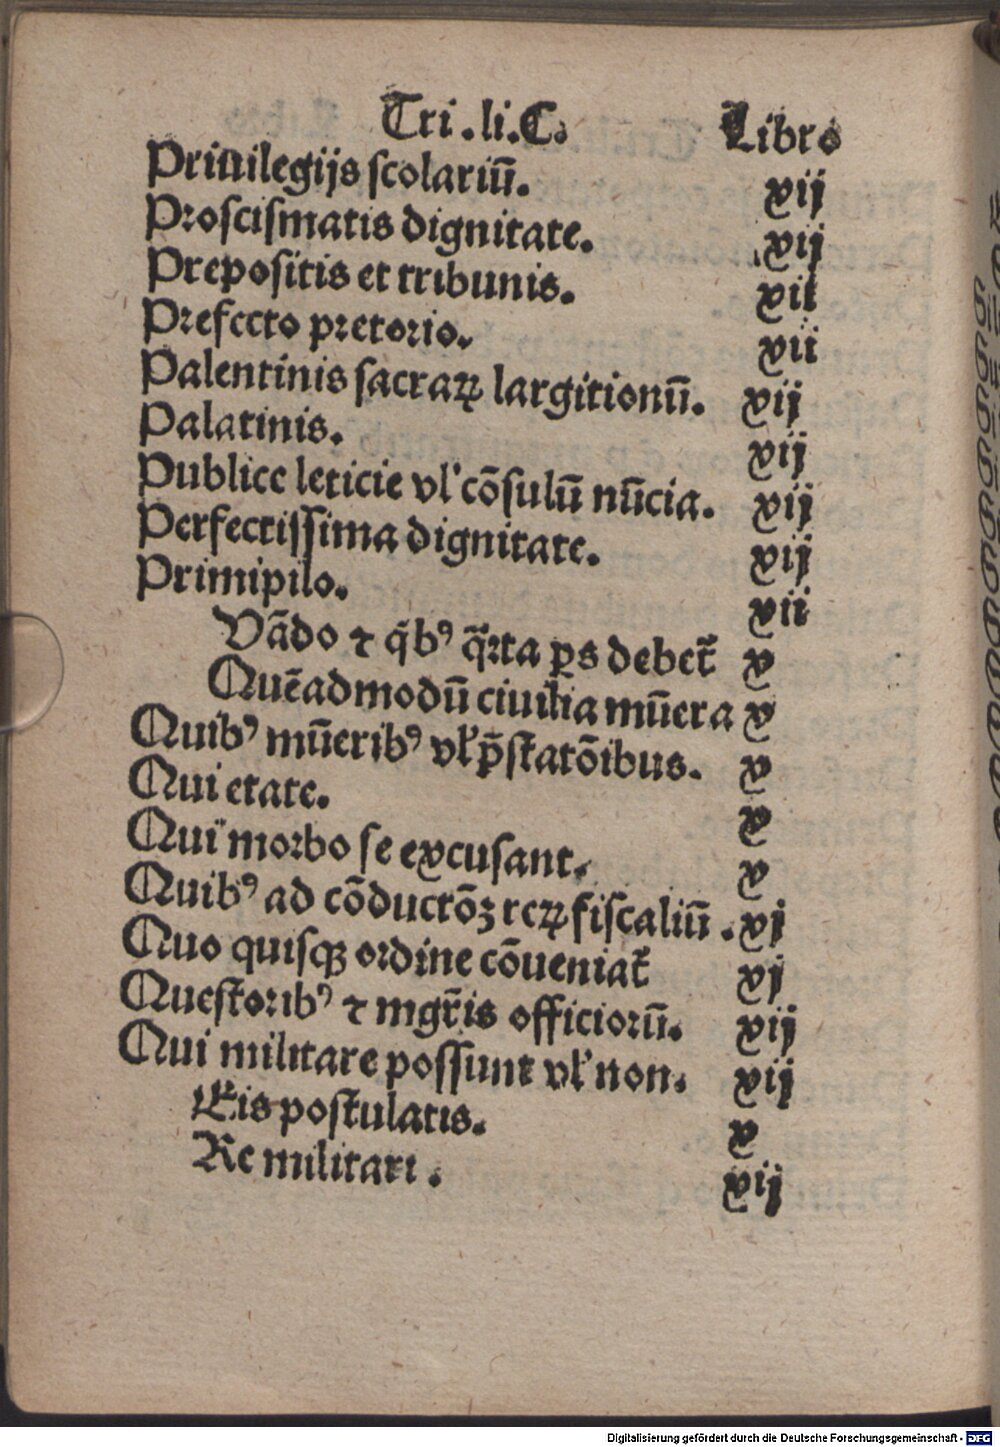 Tri.li.C. Libro
Priuilegijs scolariū. xij
Proscismatis dignitate. xij
Prepositis et tribunis. xii
Prefecto pretorio. xii
Palentinis sacraꝝ largitionū. xij
Palatinis. xij
Publice leticie vl' cōsulū nūcia. xij
Perfectissima dignitate. xij
Primipilo. xii
Vādo ⁊ q̇bꝰ q̄rta ꝑs debet᷑ x
Quēadmodū ciuilia mūera x
Quibꝰ mūeribꝰ vł p̄statōibus. x
Qui etate. x
Qui morbo se excusant. x
Quibꝰ ad cōductōꝫ reꝝ fiscaliū. xj
Quo quisqꝫ ordine cōueniat᷑ xj
Questoribꝰ ⁊ mgr̄is officiorū. xij
Qui militare possunt vł non. xij
Eis postulatis. x
Re militari. xij
Digitalisierung gefördert durch die Deutsche Forschungsgemeinschaft - DFG